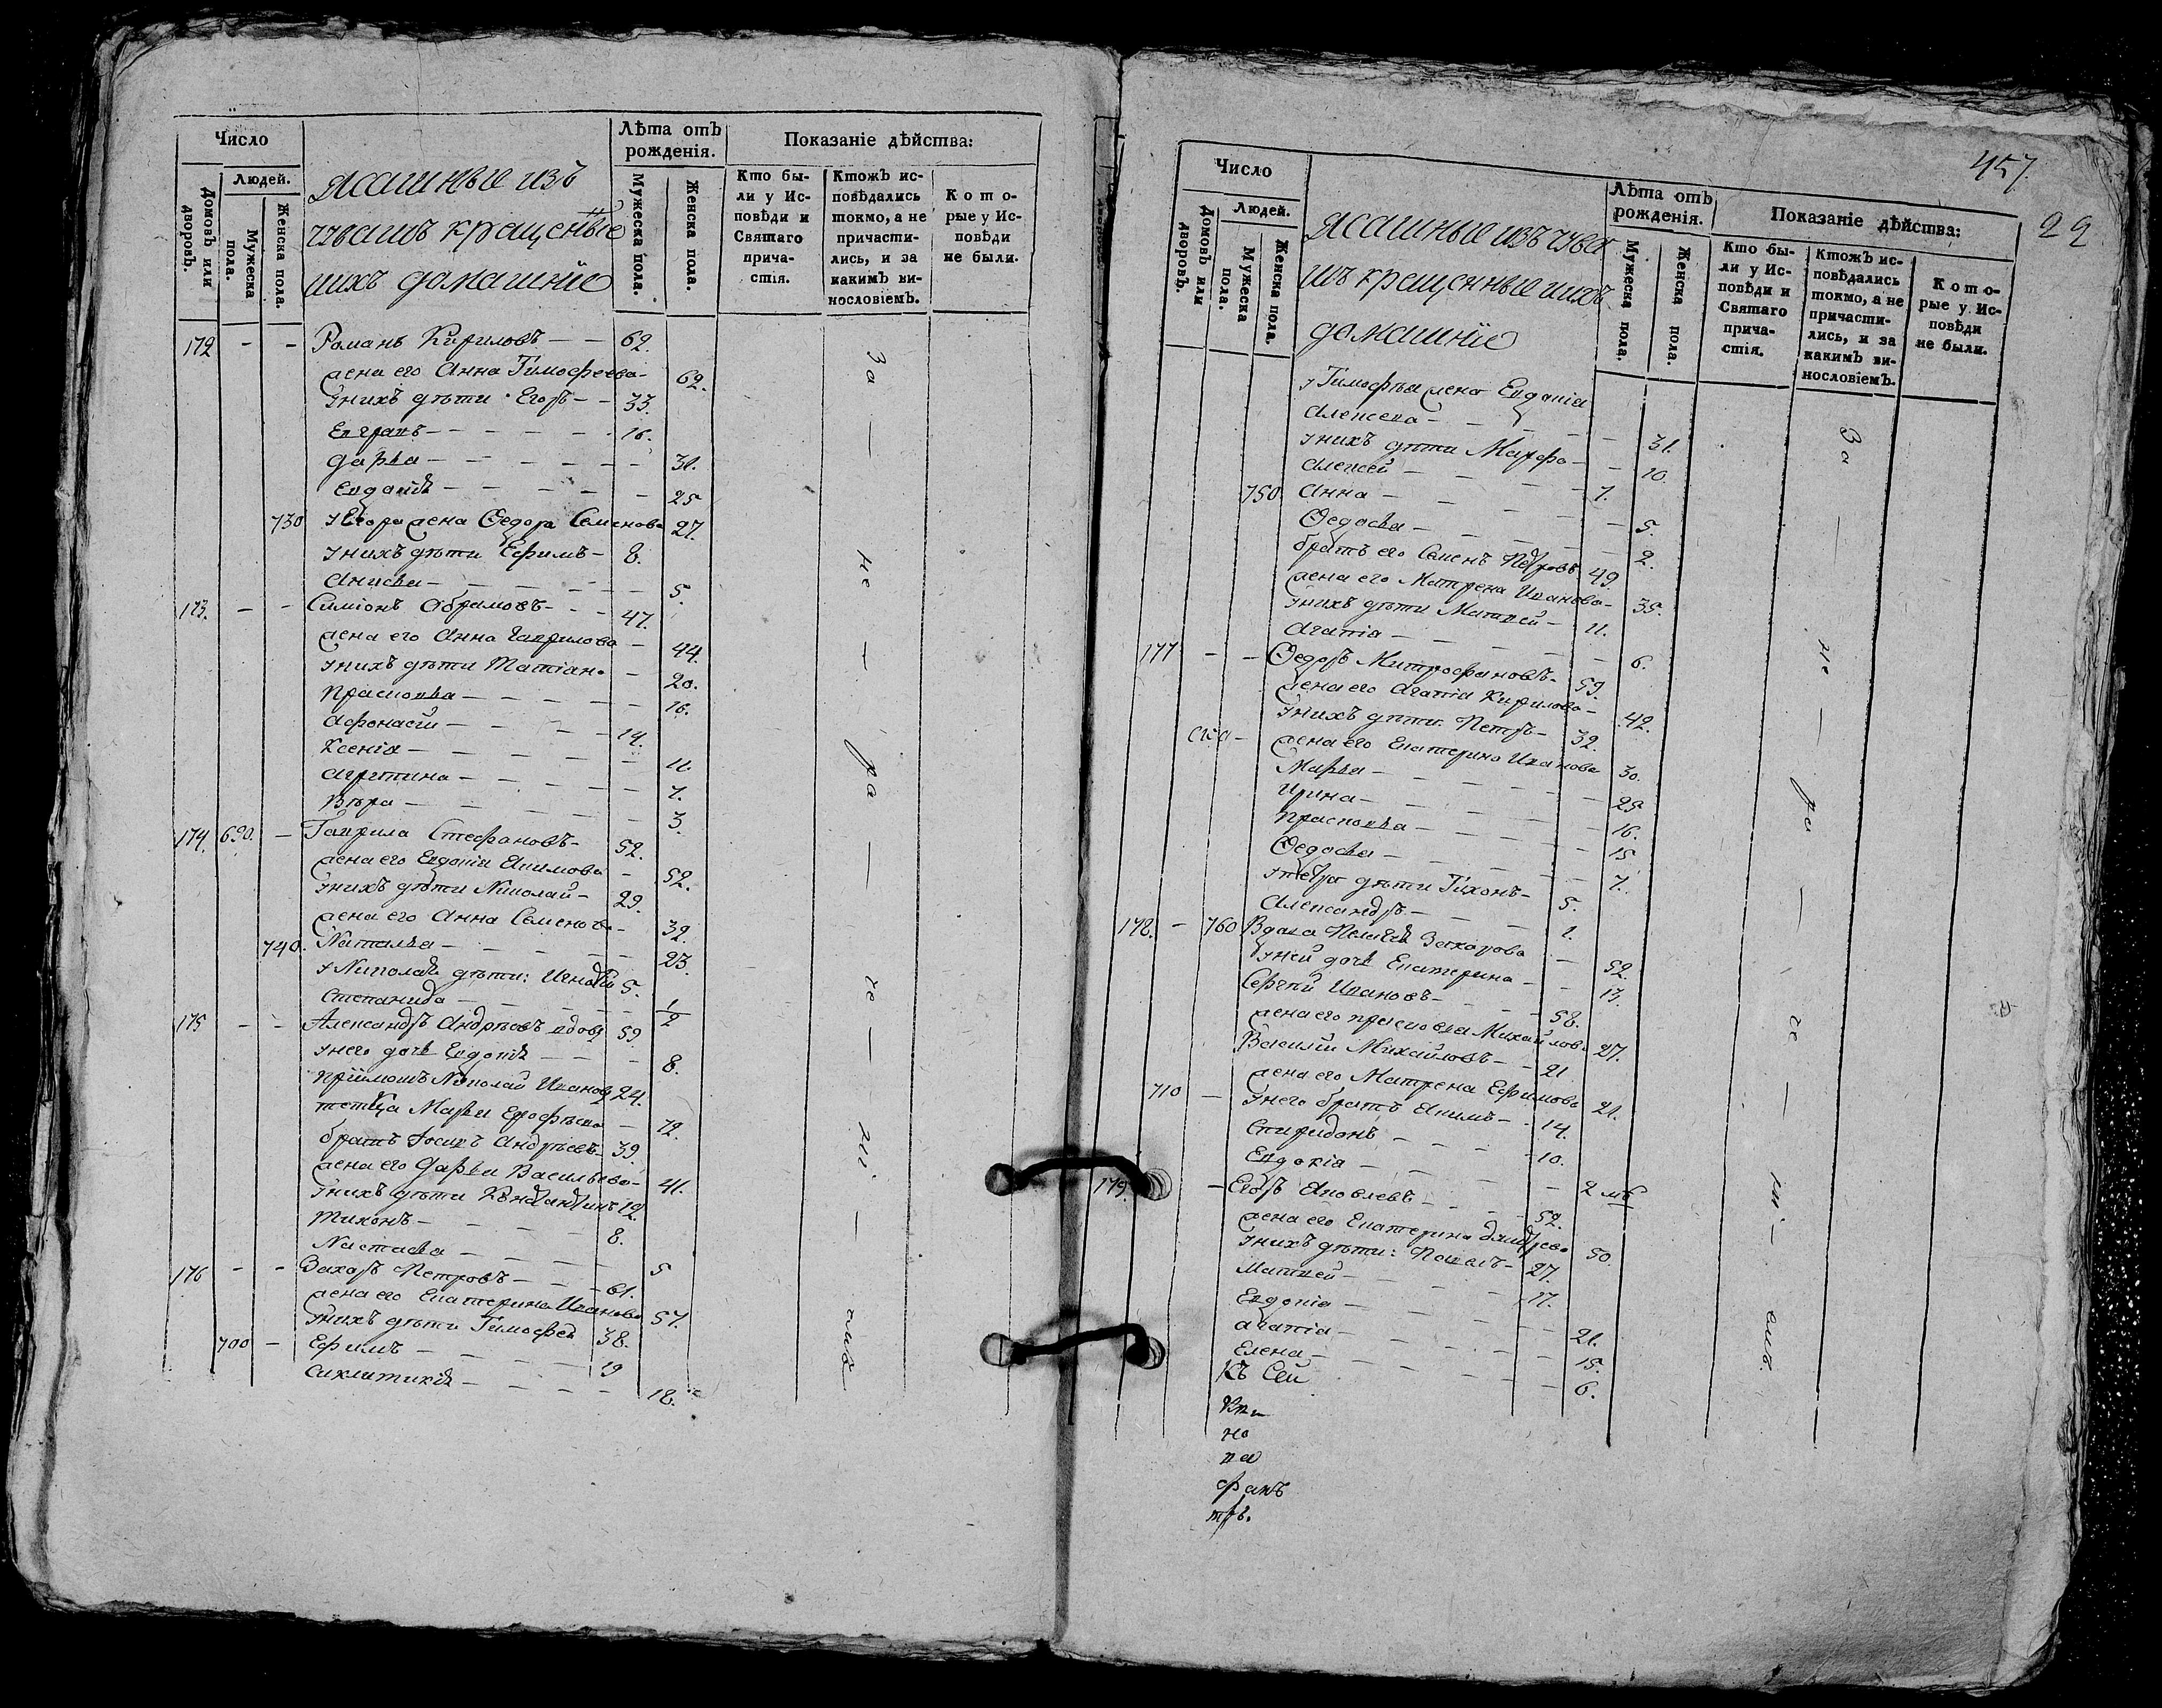 Число
Людей.
Домовъ или дворовъ.
Мужеска пола.
Женска пола.
Ясашные изъ
чувашъ крещеные
иихъ домашніе
Лѣта отъ рожденія.
Мужеска пола.
Женска пола.
Показаніе дѣйства:
Кто бы-
ли у Ис-
повѣди и
Святаго
прича-
стія.
Ктожъ ис-
повѣдались
токмо, а не
причасти-
лись, и за
какимъ ви-
нословіемъ.
К о т о-
рые у Ис-
повѣди
не были.
172 - - Романъ Кириловъ - - 62.
жена его Анна Тимофеева - 62.
унихъ дѣти Егоръ - - 33.
Евграфъ - 16.
Дарья - 31.
Евдокія - 25
730 уЕгора жена Ѳедора Семенова 27.
унихъ дѣти Ефимъ - 8.
Анисья - 5.
173. - - Симіонъ Обрамовъ - 47.
жена его Анна Гаврилова - 44.
унихъ дѣти Татіана - 20.
Прасковья - 16.
Афонасій - 14.
Ксенія - 11.
Агрипина - 7.
Вѣра - 3.
174. 690. - Гаврила Стефановъ - 52.
жена его Евдокія Якимова - 52.
унихъ дѣти Николай - 29.
жена его Анна Семенова - 32.
740. Наталья - 23.
уНиколая дѣти: Игнатій 5.
Степанида - 1/2
175 - - Александръ Андрѣевъ вдовъ 59.
унего дочь Евдокія - 8.
Пріимошъ Николай Ивановъ 24.
тетка Марья Ерофѣева - 72.
братъ Іосифъ Андрѣевъ 39.
жена его Дарья Васильева - 41.
унихъ дѣти Констандинъ 12.
Тихонъ - 8.
Настасья - 5
176 - - Захаръ Петровъ - 61.
жена его Екатерина Иванова 57.
унихъ дѣти Тимофей 38.
700 - Ефимъ - 19
Сиклитикія - 18.
За - не - ра - че - ні - емъ
457.
22
Число
Людей.
Домовъ или дворовъ.
Мужеска пола.
Женска пола.
Ясашные изъ чува
шъ крещенные иихъ
домашніе
Лѣта отъ рожденія.
Мужеска пола.
Женска пола.
Показаніе дѣйства:
Кто бы-
ли у Ис-
повѣди и
Святаго
прича-
стія.
Ктожъ ис-
повѣдались
токмо, а не
причасти-
лись, и за
какимъ ви-
нословіемъ.
К о т о-
рые у Ис-
повѣди
не были.
уТимофѣя жена Евдокія
Алексеева - 31.
унихъ дѣти Марфа - 10.
Алексей - 7.
750. Анна - 5.
Ѳедосья - 2.
братъ его Семенъ Петровъ 49.
жена его Матрена Иванова - 35.
унихъ дѣти Матвей - 11.
Агапія - 6.
177 - - Ѳедоръ Митрофановъ - 59.
жена его Агапія Кирилова - 42.
унихъ дѣти: Петръ - 32.
жена его Екатерина Иванова 30.
Марья - 25
Ирина - 16.
Прасковья - 15
Ѳедосья - 7.
уПетра дѣти Тихонъ - 5.
Александръ - 1.
178. - 760 Вдова Пелагея Захарова - 52.
уней дочь Екатерина - 13.
Сергѣй Ивановъ - 58.
жена его Прасковья Михайлова 27.
Василій Михайловъ - 21
жена его Матрена Ефимова 21.
710 - унего братъ Якимъ - 14.
Спиридонъ - 10.
Евдокія - 2 мѣ
179. - Егоръ Яковлевъ - 52.
жена его Екатерина Дмитрева 50.
унихъ дѣти: Павелъ - 27.
Матвей - 17.
Евдокія - 21.
Агапія - 15.
Елена - 6.
Къ Сей
но
па
фанъ
За - не - ра - че - ні - емъ.